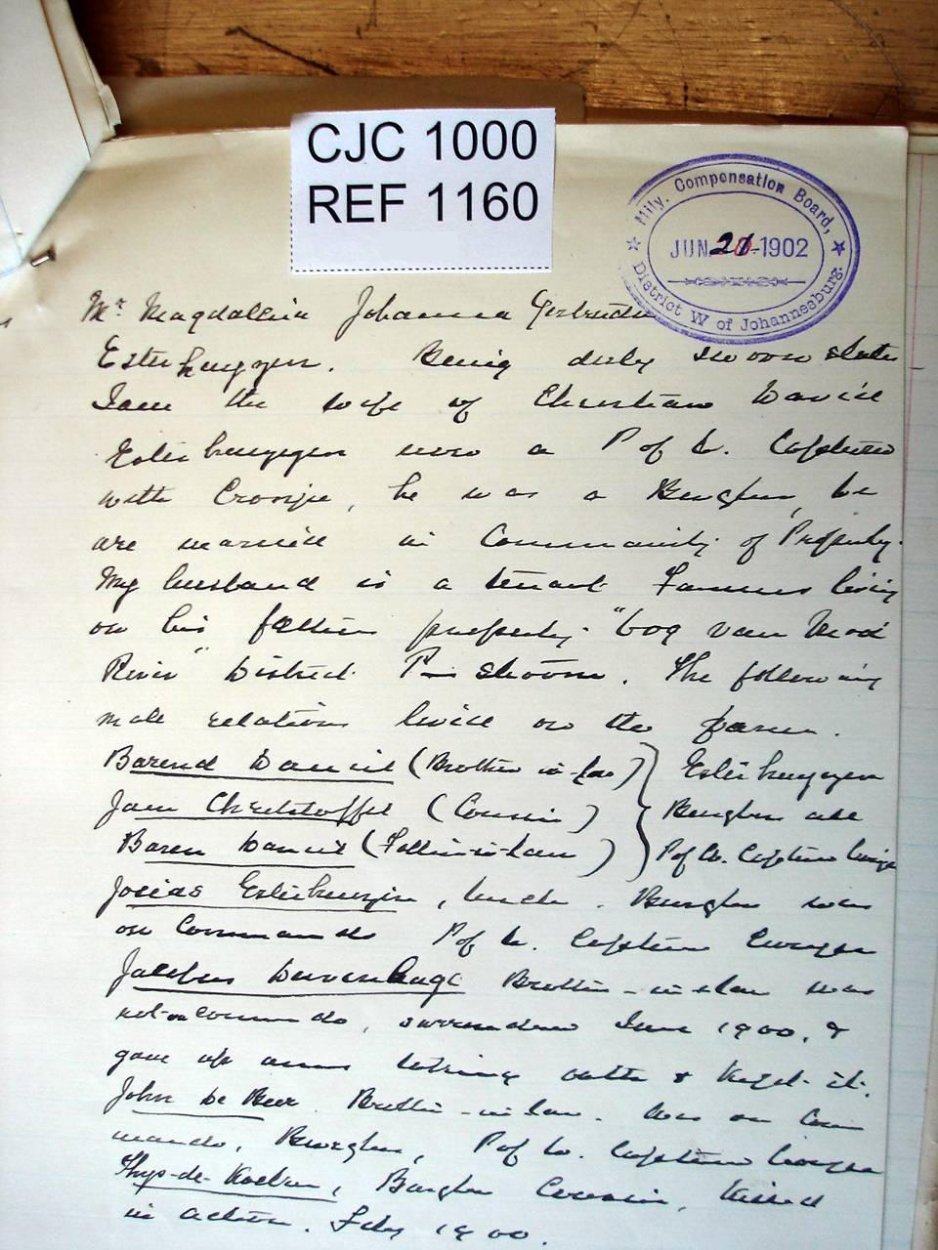 CJC 1000
REF 1160
Mily. Compensation Board,
JUN 21 1902
District W of Johannesburg.
Mrs Magdallina Johanna Gertruda
Esterhuyzen. Being duly sworn states
I am the wife of Christian Daniel
Esterhuyzen now a P of W. Captured
with Cronje, he was a Burgher, we
are married in Community of Property.
My husband is a tenant Farmer living
on his fathers property "Oog van Mooi
River" District P— stroom. The following
male relations lived on the farm.
Barend Daniel (Brother in-law) Esterhuyzen
Jan Christoffel (Cousin) Burghers all
Baren Daniel (Father-in-Law) P of W. Capture Cronje
Josias Esterhuyzen, Uncle. Burgher was
on Commando P of W. Capture Cronje
Jacobus Davenhage Brother-in-law was
not on commando, surrendered June 1900, &
gave up arms taking oath & kept it.
John de Beer. Brother-in-law. Was on Com
mando, Burgher, P of W. Capture Cronje
Thys-de-, Burgher Cousin, killed
in action. Feby 1900.